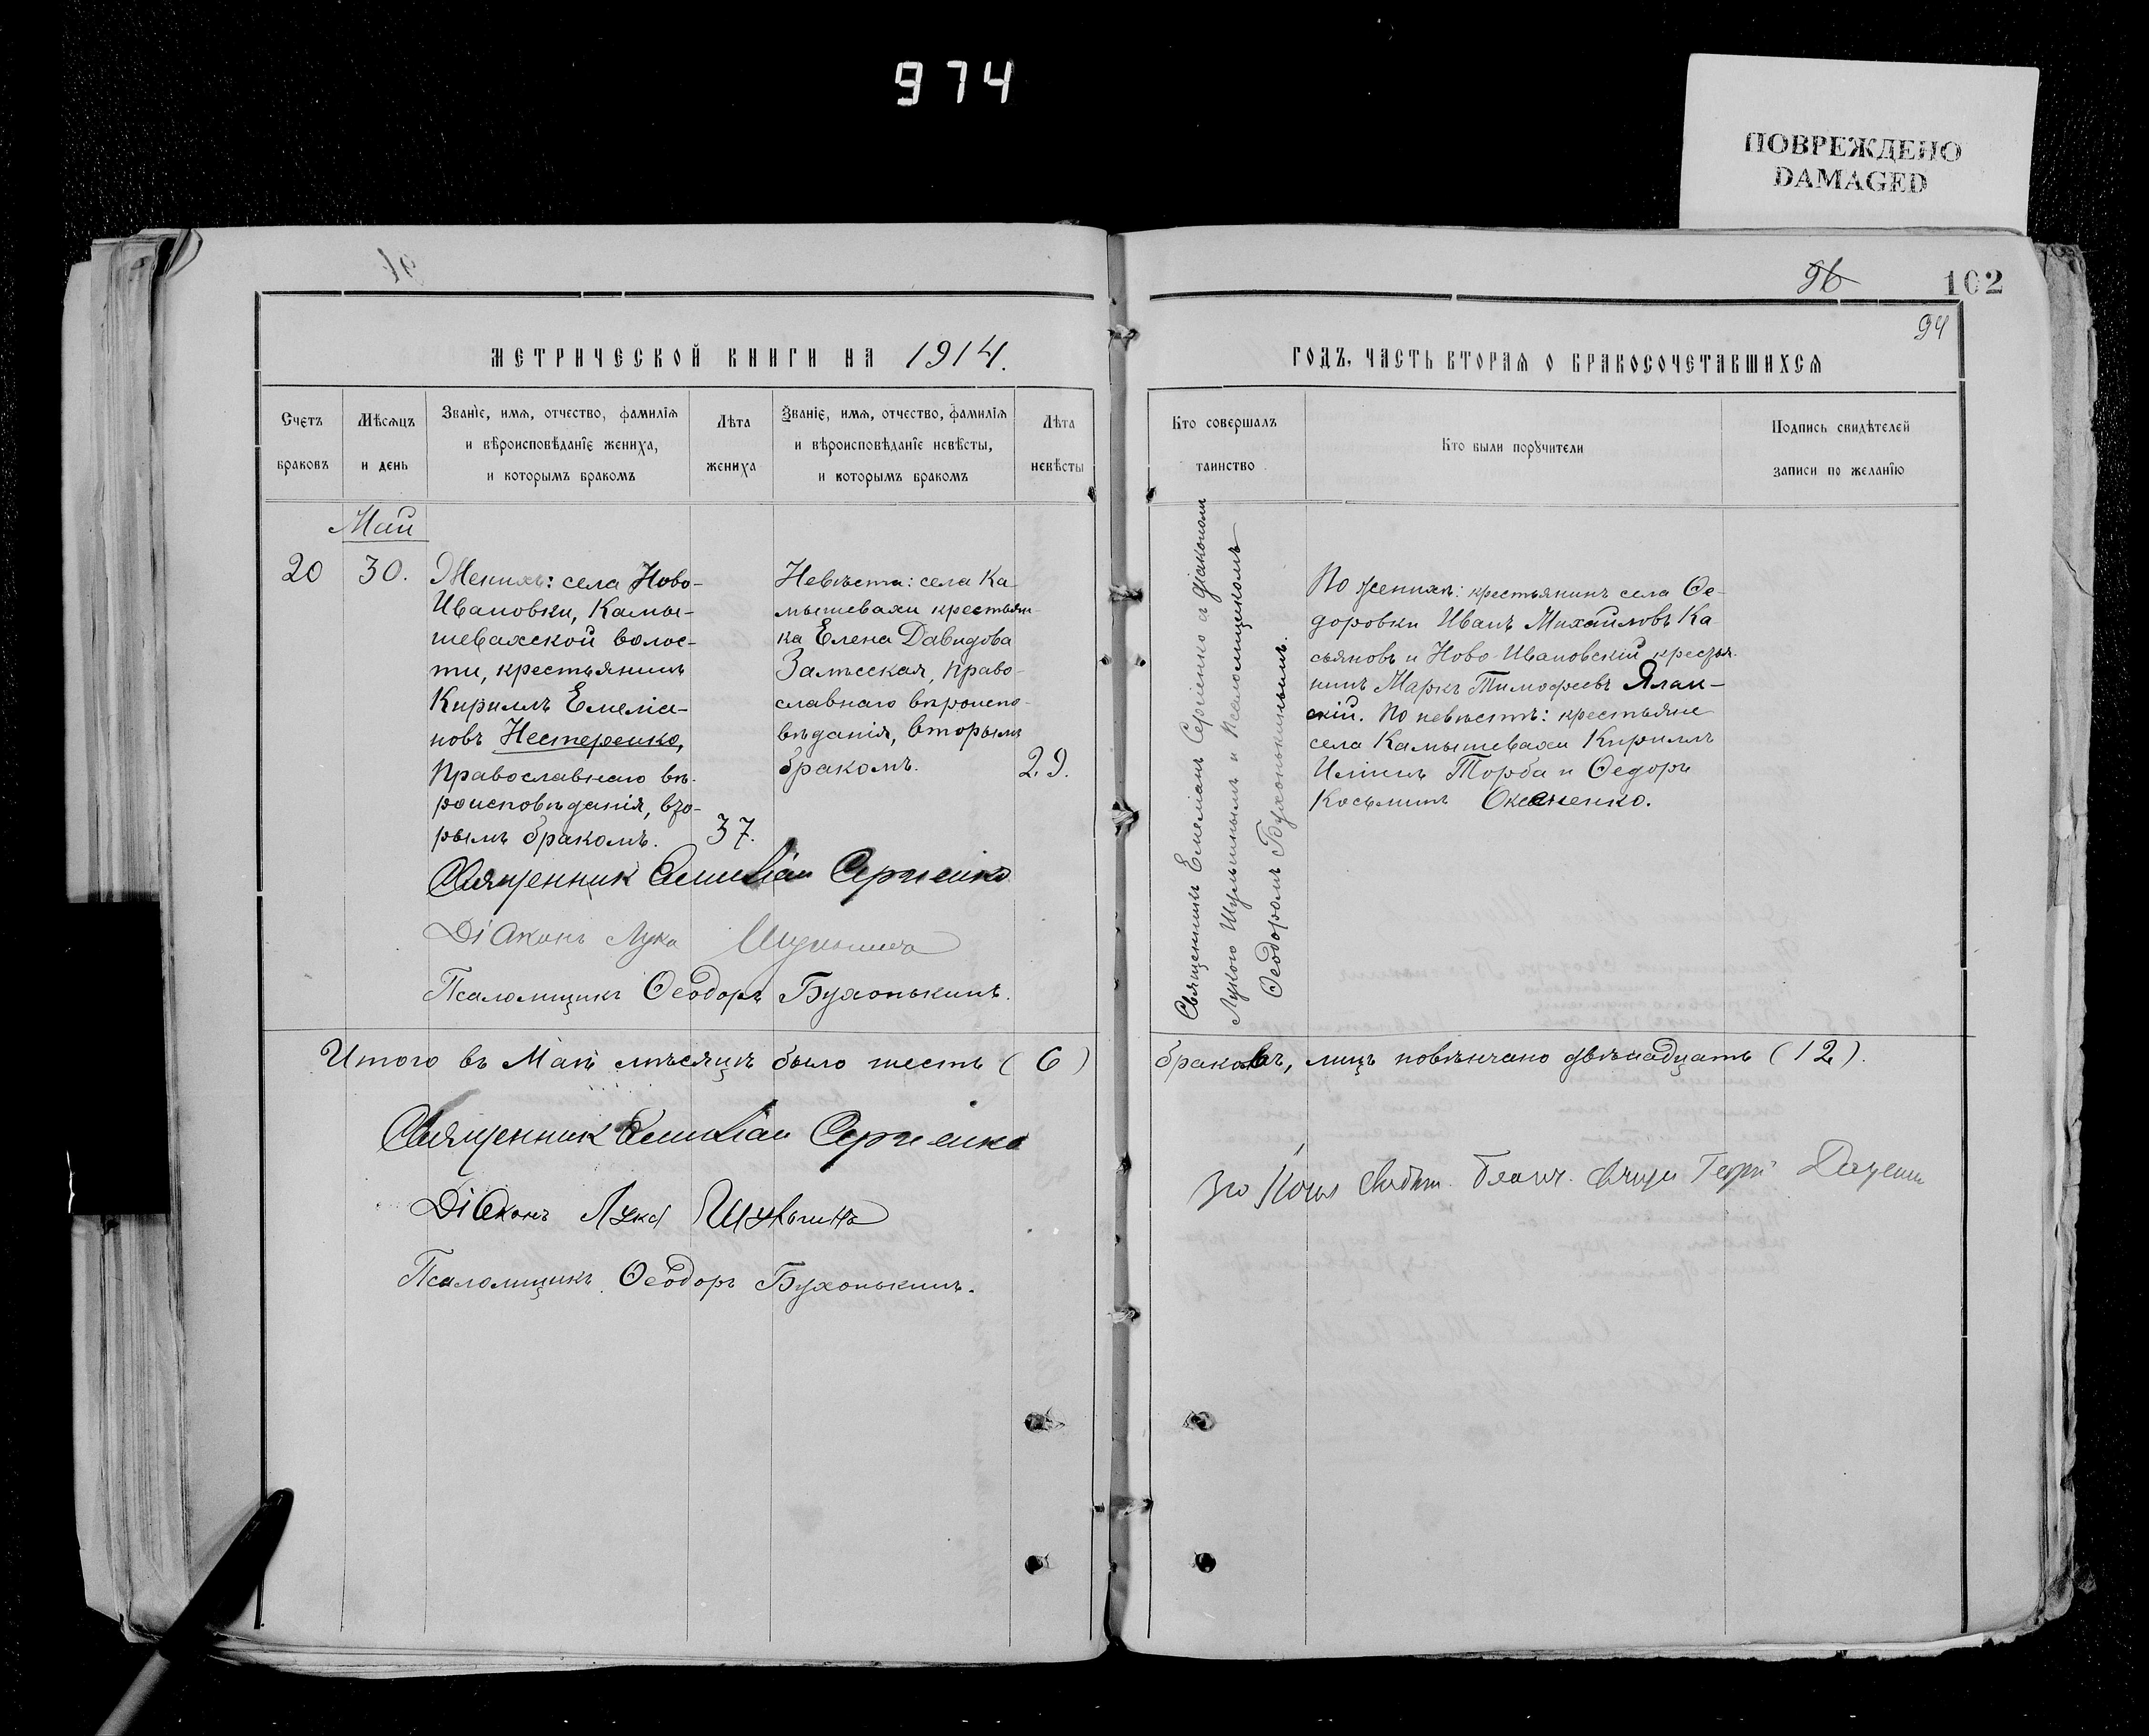 974
ПОВРЕЖДЕНО
DAMAGED
96
102
94
МЕТРИЧЕСКОЙ КНИГИ НА 1914.
ГОДЪ, ЧАСТЬ ВТОРАЯ О БРАКОСОЧЕТАВШИХСЯ
Счетъ
браковъ
Мѣсяцъ
и день
Званіе, имя, отчество, фамилія
и вѣроисповѣданіе жениха,
и которымъ бракомъ
Лѣта
жениха
Званіе, имя, отчество, фамилія
и вѣроисповѣданіе невѣсты,
и которымъ бракомъ
Лѣта
невѣсты
Кто совершалъ
таинство
Кто были поручители
Подпись свидѣтелей
записи по желанію
Май
20
30.
Женихъ: села Ново-
Ивановки, Камы-
шевахской волос-
ти, крестьянинъ
Кириллъ Емеліа-
новъ Нестеренко,
православнаго вѣ-
роисповѣданія, вто-
рымъ бракомъ.
37.
Невѣста: села Ка-
мышевахи крестьян-
ка Елена Давидова
Залѣсская, право-
славнаго вѣроиспо-
вѣданія, вторымъ
бракомъ.
29.
Священникъ Емеліанъ Сергіенко съ діакономъ
Лукою Шульгинымъ и псаломщикомъ
Ѳеодоромъ Бухонькинымъ.
По женихѣ: крестьянинъ села Ѳе-
доровки Иванъ Михайловъ Ка
сьяновъ и Ново-Ивановскій крестья-
нинъ Маркъ Тимофеевъ Ялан-
скій. По невѣстѣ: крестьяне
села Камышевахи Кириллъ
Ильинъ Торба и Ѳедоръ
Косьминъ Оксененко.
Священникъ Емиліан Сергіенко
Діаконъ Лука Шульгинъ
Псаломщикъ Ѳеодоръ Бухонькинъ.
Итого въ Маѣ мѣсяцѣ было шесть (6)
браковъ, лицъ повѣнчано двѣнадцать (12).
Священник Емиліан Сергіенко
Діаконъ Лука Шульгинъ
Псаломщикъ Ѳеодоръ Бухонькинъ.